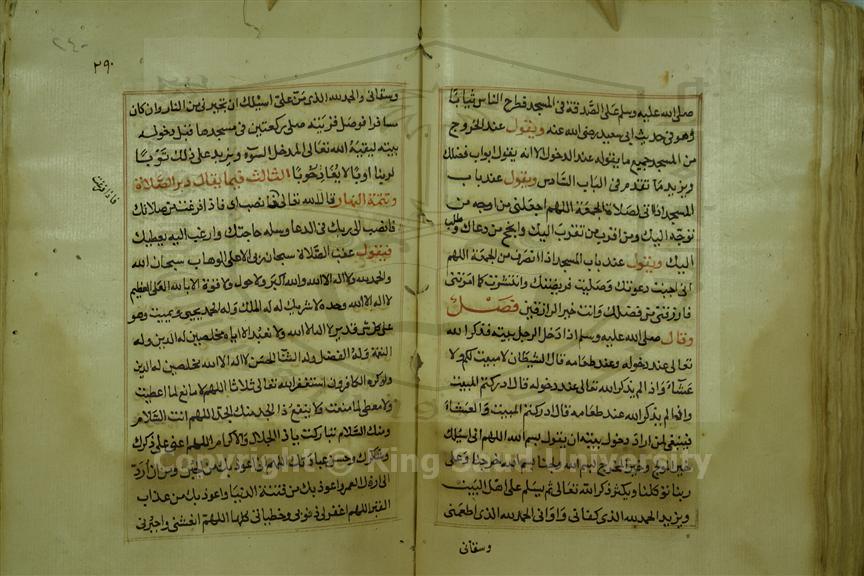 صلى الله عليه وسلم على الصدقة فى المسجد فطرح الناس ثيابا
وهو فى حديث ابى سعيد رضى الله عنه ويقول عند الخروج
من المسجد جميع ما يقوله عند الدخول الا انه يقول ابواب فضلك
ويزيد ما تقدم فى الباب السادس ويقول عند باب
المسجد اذا اتى لصلاة الجمعة اللهم اجعلنى من اوجه من
توجه اليك ومن اقرب من تقرب اليك وانجح من دعاك وطلب
اليك ويقول عند باب المسجد اذا انصرف من الجمعة اللهم
انى اجبت دعوتك وصليت فريضتك وانتشرت كما امرتنى
فارزقنى من فضلك وانت خير الرازقين فصل
وقال صلى الله عليه وسلم اذا دخل الرجل بيته فذكر الله
تعالى عند دخوله وعند طعامه قال الشيطان لا مبيت لكم ولا
عشاء واذا لم يذكر الله تعالى عند دخوله قال ادركتم المبيت
واذا لم يذكر الله عند طعامه قال ادركتم المبيت والعشاء
فينبغى لمن اراد دخول بيته ان يقول بسم الله اللهم انى اسئلك
خير المولج وخير المخرج بسم الله ولجنا بسم الله خرجنا وعلى
ربنا توكلنا ويكثر ذكر الله تعالى ثم يسلم على اهل البيت
ويزيد الحمد لله الذى كفانى واوانى الحمد لله الذى اطعمنى
وسقانى
٢٩٠
٢٤٠
وسقانى والحمد لله الذى من على اسئلك ان تجيرنى من النار وان كان
مسافرا فوصل قريته صلى ركعتين فى مسجدها قبل دخوله
بيته ليقيه الله تعالى المدخل السوء ويزيد على ذلك توبا
لربنا اوبا لا يغادر حوبا الثالث فيما يقال دبر الصلاة
وتتمة النهار قال الله تعالى فانصب اى فاذا فرغت من صلاتك
فانصب الى ربك فى الدعا وسله حاجتك وارغب اليه يعطيك
فيقول عقب الصلاة سبحان ربى الاعلى الوهاب سبحان الله
والحمد لله ولا اله الا الله والله اكبر ولا حول ولا قوة الا بالله العلى العظيم
لا اله الا الله وحده لا شريك له له الملك وله الحمد يحيى ويميت وهو
على كل شئ قدير لا اله الا الله ولا نعبد الا اياه مخلصين له الدين وله
النعمة وله الفضل وله الثنا الحسن لا اله الا الله مخلصين له الدين
ولو كره الكافرون استغفر الله تعالى ثلاثا اللهم لا مانع لما اعطيت
ولا معطى لما منعت ولا ينفع ذا الجد منك الجد اللهم انت السلام
ومنك السلام تباركت يا ذا الجلال والاكرام اللهم اعنى على ذكرك
وشكرك وحسن عبادتك اللهم انى اعوذ بك من الجبن ومن ان ارد
الى ارذل العمر واعوذ بك من فتنة الدنيا واعوذ بك من عذاب
القبر اللهم اغفر لى ذنوبى وخطاياى كلها اللهم انعشنى واجبرنى
Copyright © King Saud University